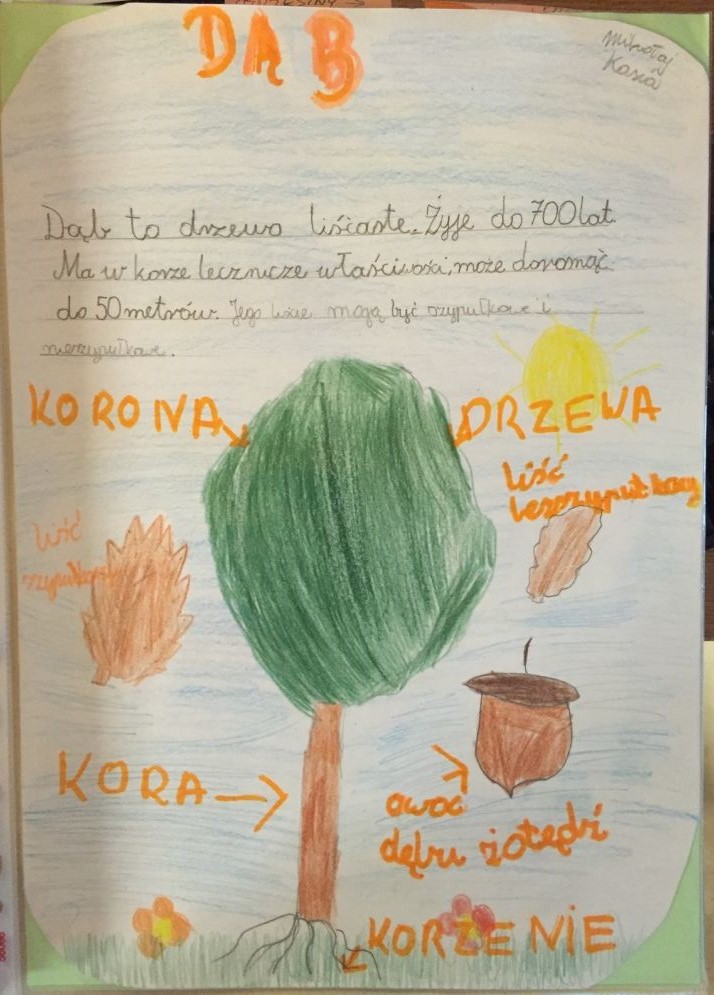 DĄB
Mikołaj
Kasia
Dąb to drzewo liściaste. Żyje do 700 lat.
Ma w korze lecznicze właściwości, może dorosnąć
do 50 metrów. Jego liście mogą być szypułkowe i
nieszypułkowe.
KORONA DRZEWA
liść
bezszypułkowy
liść
szypułkowy
KORA
owoc
dębu żołędź
KORZENIE